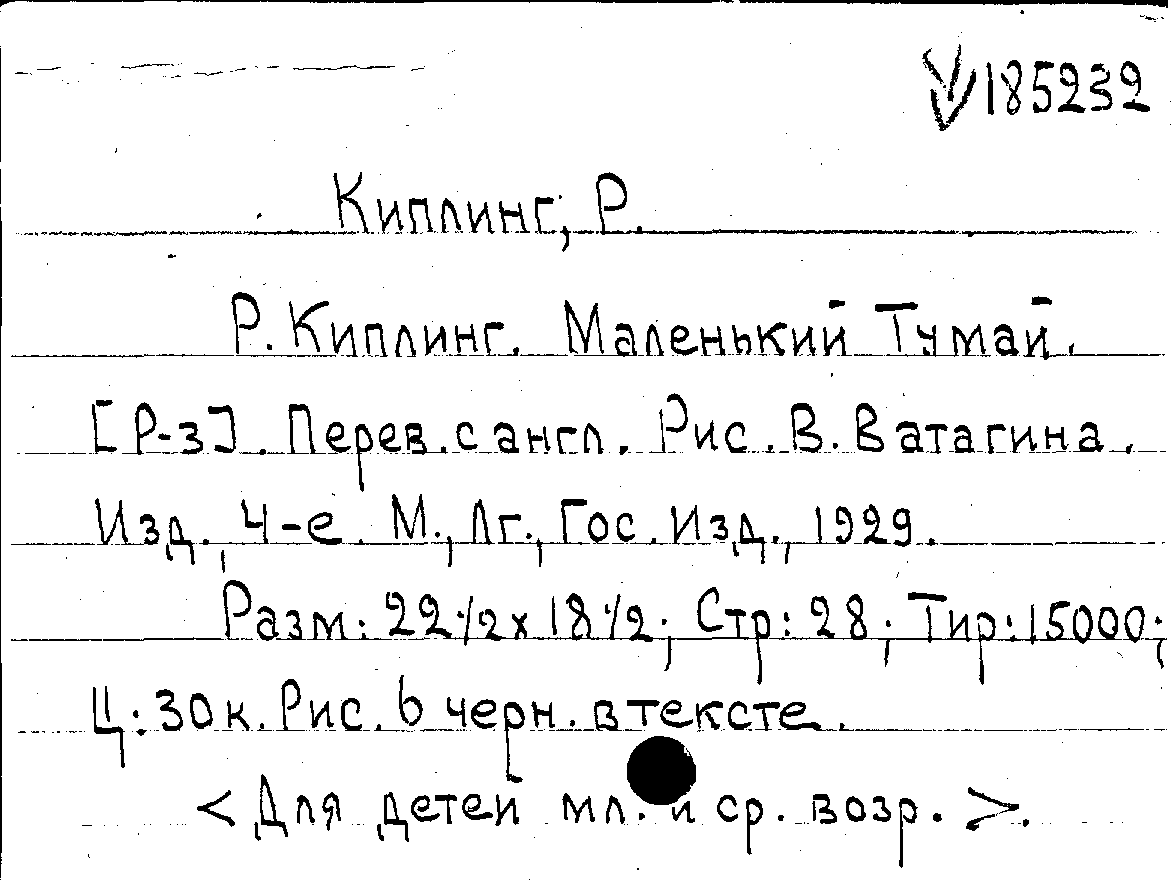 V185232
Киплинг, Р.
Р. Киплинг. Маленький Тумай.
[Р-з]. Перев. с англ. Рис. В. Ватагина.
Изд. 4-е. М., Лг., Гос. Изд., 1929.
Разм: 22 1/2 x 18 1/2; Стр: 28; Тир: 15000;
Ц: 30 к. Рис. 6 черн. в тексте.
<Для детей мл. и ср. возр.>.